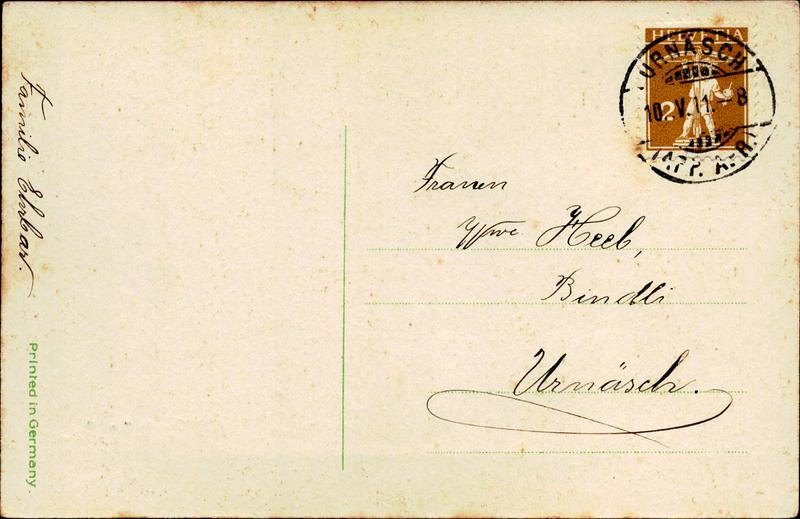 HELVETIA
URNÄSCH
10. V. 11. - 8
(APP. A. RH.)
2
Frauen
Wwe. Heeb,
Bindli
Urnäsch.
Familie Ehrbar.
Printed in Germany.